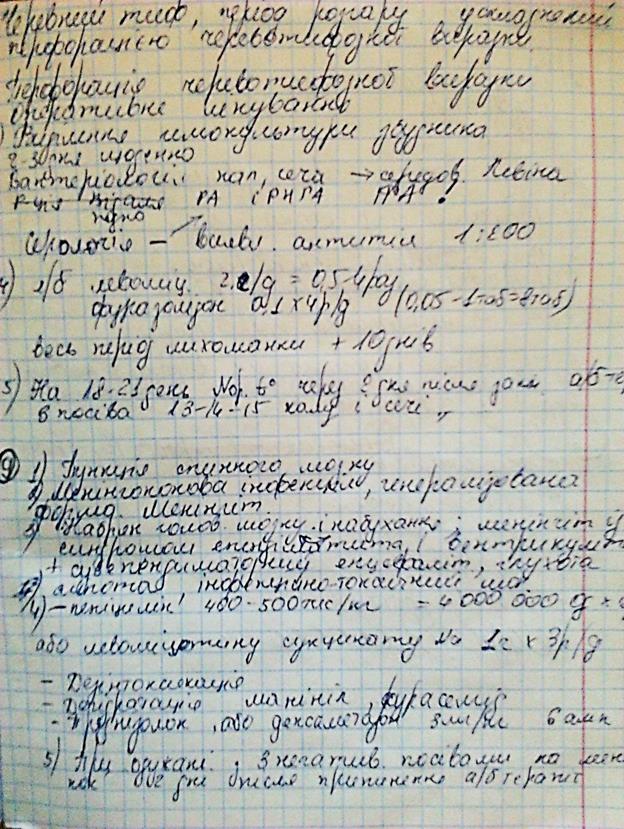 Черевний тиф, період розпалу ускладнений
перфорацією черевотифозної виразки.
Перфорація черевотифозної виразки
оперативне лікування
) Виділення гемокультури збудника
щоденно
Бактеріологія кал, сеча → середов. Левіна
р-ція Відаля РА і РНГА !
пізно
Серологія — виявл. антитіл 1:200
4) а/б левоміц. 2г/д = 0,5-4р/д
фуразолідон 0,1 x 4р/д (0,05-1таб=8таб)
весь період лихоманки + 10 днів
5) На 18-21 день Nор. t° через 2 дня після зак. а/б-т
3 посіва 13-14-15 калу і сечі
9 1) Пункція спинного мозку
2) Менінгококова інфекція, генералізована
форма. Менінгіт.
3) Набряк голов. мозку і набухання; менінгіт із
синдромом і вентрикуліт
+ енцефаліт, глухота
інфекційно-токсичний шок
4) – пеніцилін 400-500тис/кг = 4000 000
або левоміцетину сукцинату Na 1г x 3р/д
– Дезінтоксикація
– Дегідратація манніт, фуросемід
– Преднізолон, або дексаметазон 3мг/кг 6 амп
5) При одужані і 3 негатив. посівами на
кок 2 дні після припинення а/б терапії